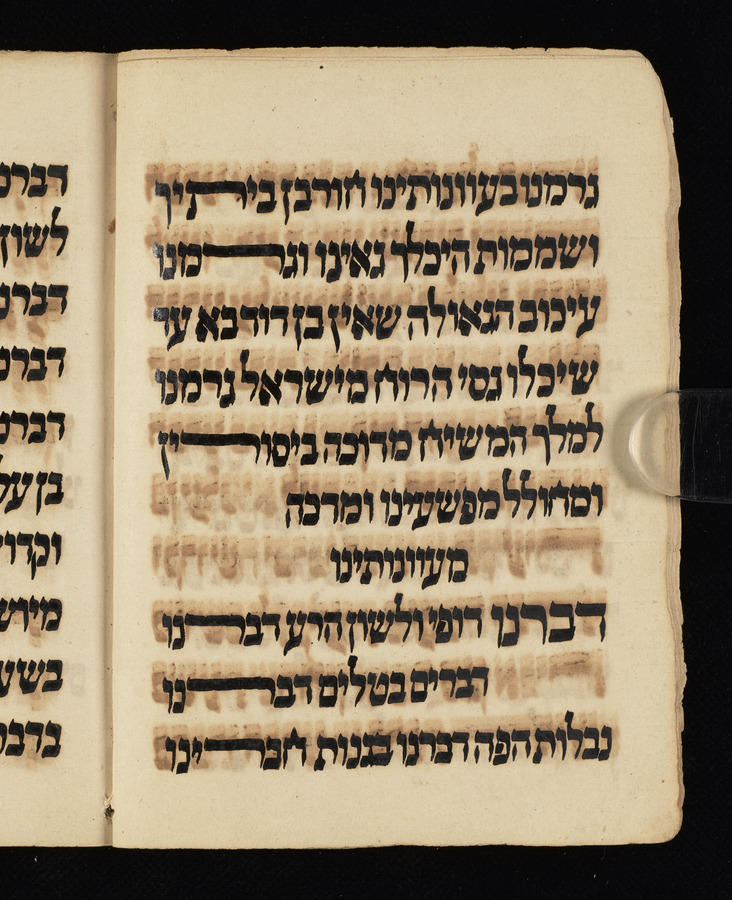 גרמנו בעוונותינו חורבן ביתיך
ושממות היכלך גאינו וגרמנו
עיכוב הגאולה שאין בן דוד בא עד
שיכלו גסי הרוח מישראל גרמנו
למלך המשיח מדוכה ביסורין
ומחולל מפשעינו ומדכה
מעוונותינו
דברנו דופי ולשון הרע דברנו
דברים בטלים דברנו
נבלות הפה דברנו בגנות חברינו
דברנ
לשון
דברנ
דברנ
דברנ
בן על
וקדו
מירש
בשע
בדבר